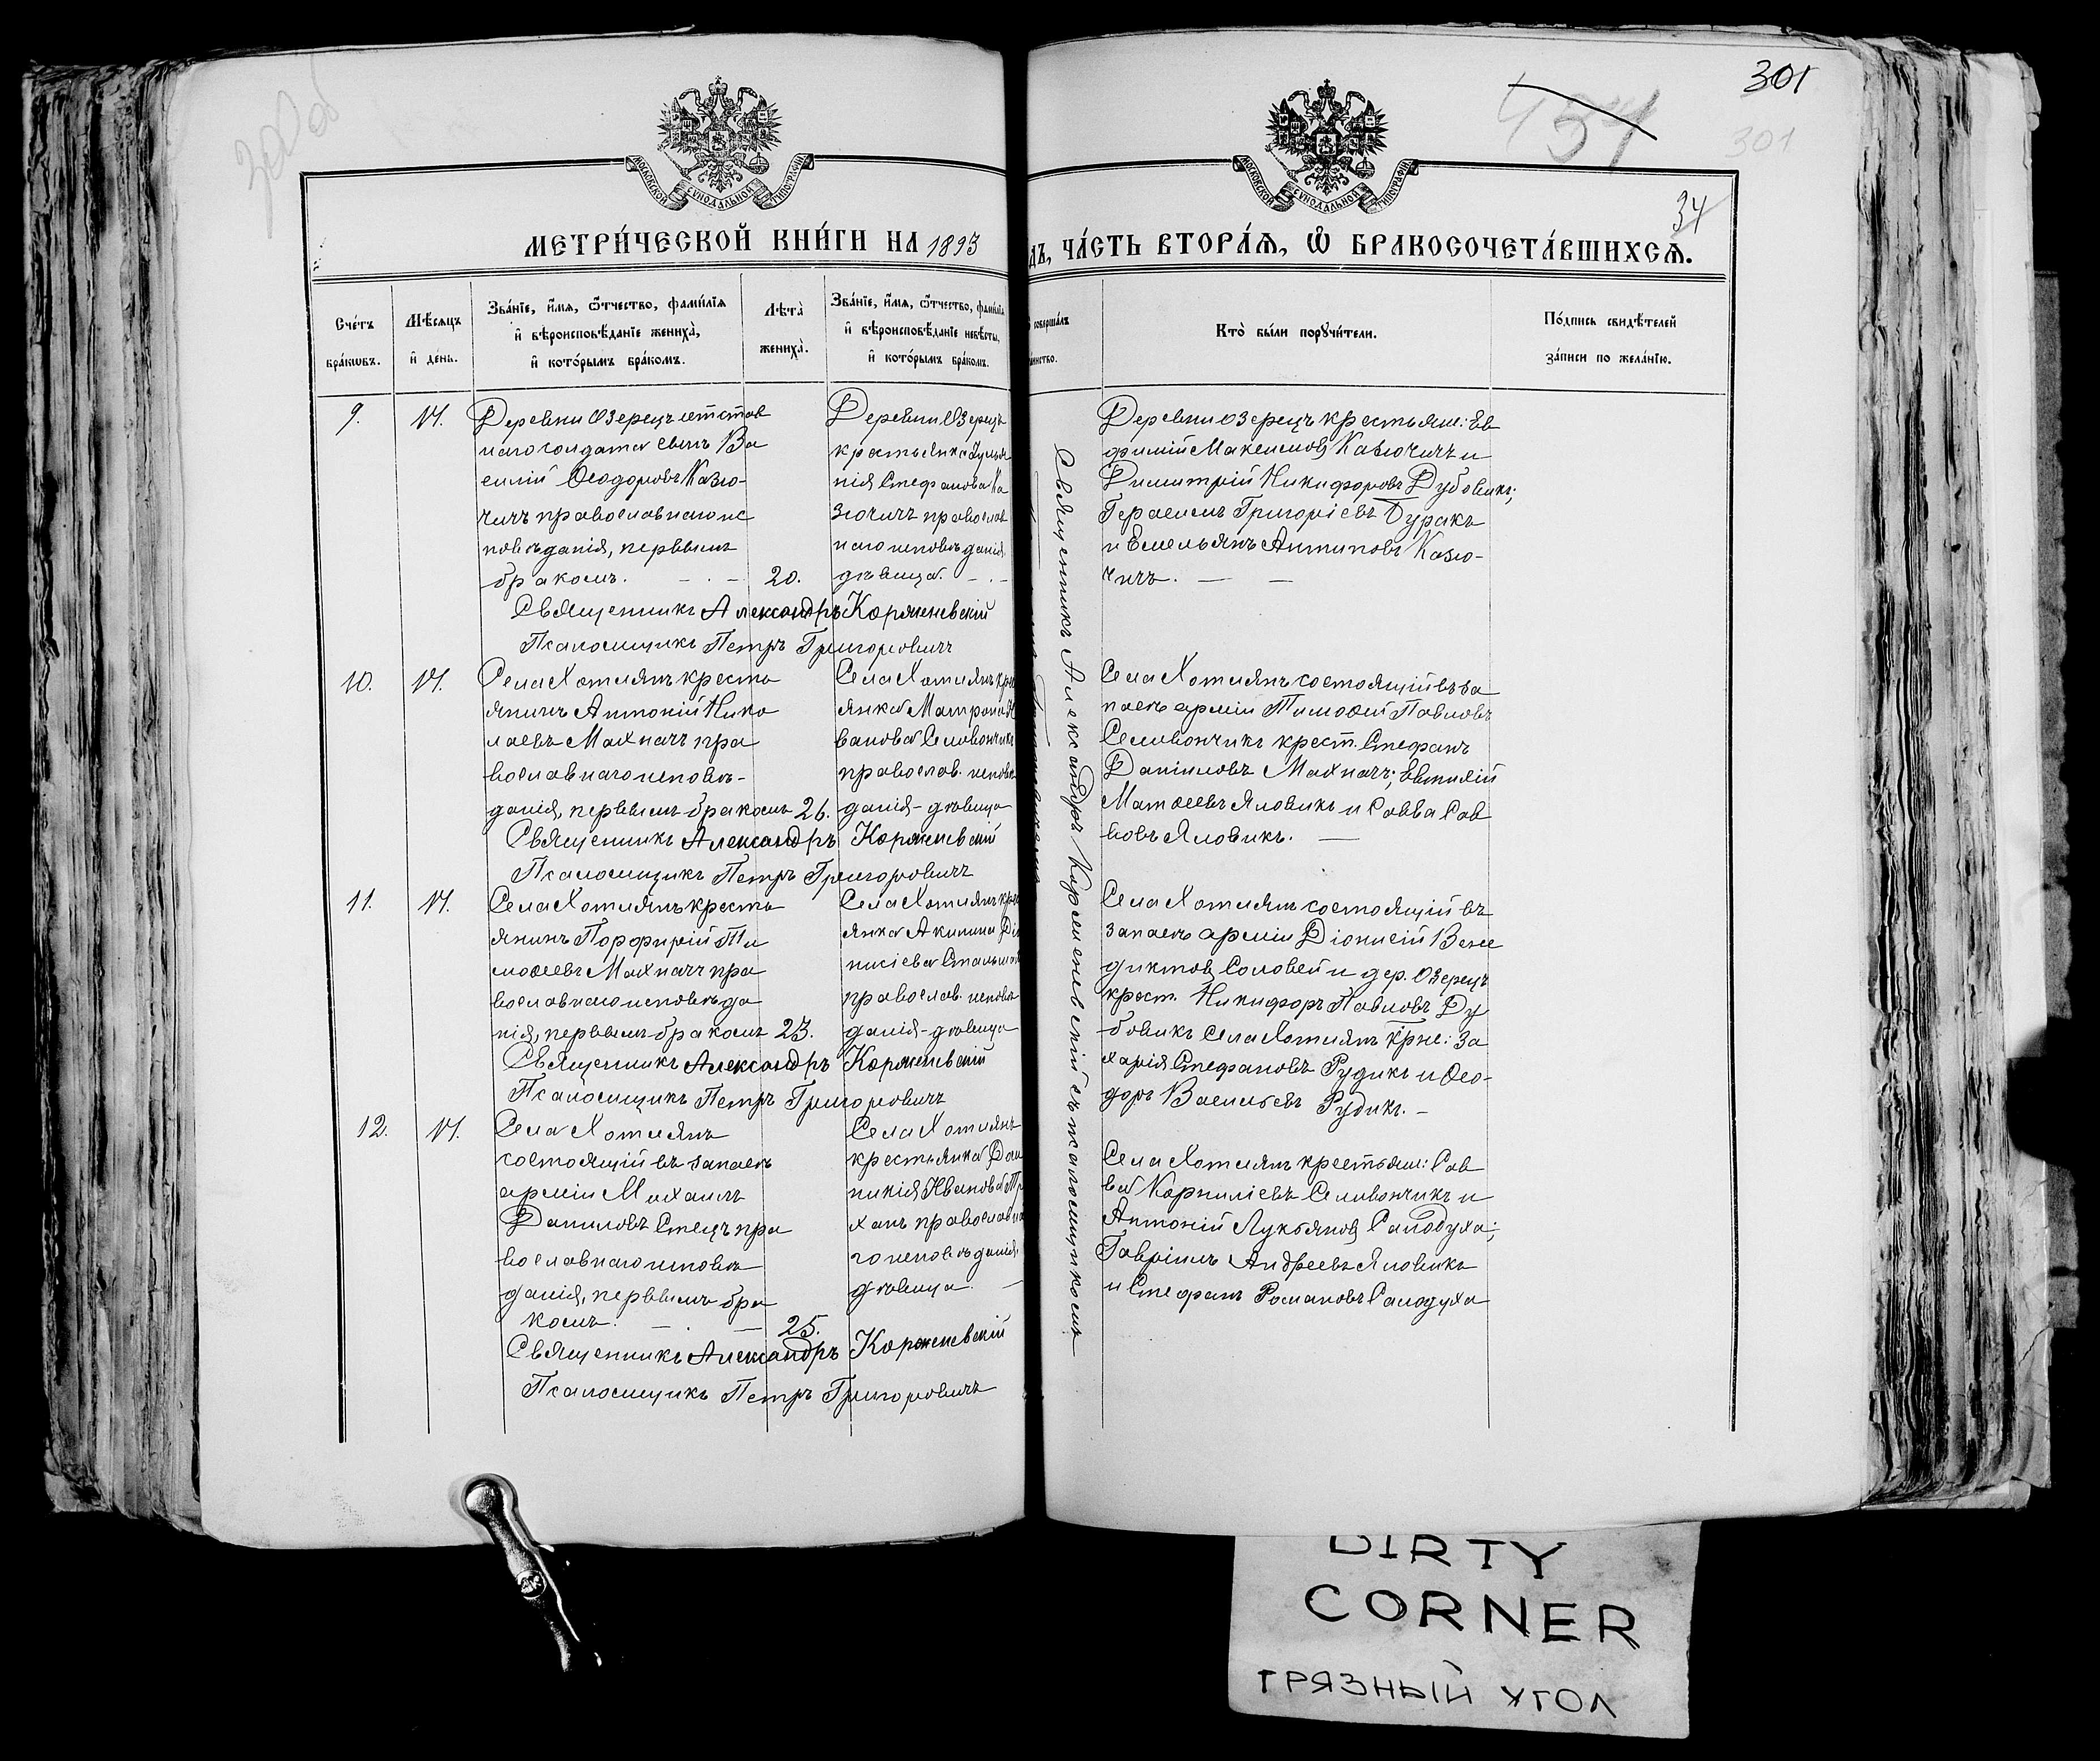 301
301
34
МОСКОВСКОЙ СУНОДАЛЬНОЙ ТИПОГРАФІИ
МОСКОВСКОЙ СУНОДАЛЬНОЙ ТИПОГРАФІИ
МЕТРИ́ЧЕСКОЙ КНИ́ГИ НА 1893
ДЪ, ЧА́СТЬ ВТОРА́Я, Ѿ БРАКОСОЧЕТА́ВШИХСЯ.
Сче́тъ бра́кѡвъ.
Мѣ́сяцъ и҆ де́нь.
Зва́нїе, и҆́мя, ѻ҆́тчество, фами́лїя и҆ вѣроисповѣ́данїе жениха̀, и҆ кото́рымъ бра́комъ.
Лѣта̀ жениха̀.
Зва́нїе, и҆́мя, ѻ҆́тчество, фами́лїя и҆ вѣроисповѣ́данїе невѣ́сты, и҆ кото́рымъ бра́комъ.
соверша́лъ
Кто̀ бы́ли порꙋчи́тели.
По́дпись свидѣ́телей за́писи по жела́нїю.
9.
Деревни Озерецъ отстав
наго солдата сынъ Ва
силій Ѳеодоровъ Казю-
чичъ православнаго ис
повѣданія, первымъ
бракомъ. 20.
Деревни Озерецъ
крестьянка
нія Стефанова Ка
зючичъ православ
наго исповѣданія
дѣвица.
Деревни Озерецъ крестьяне: Ев
фимій Максимовъ Казючичъ и
Димитрій Никифоровъ Дубовикъ;
Герасимъ Григоріевъ Буракъ
и Емельянъ Антиповъ Казю-
чичъ.
Священникъ Александръ Корженевскій
Псаломщикъ Петръ Григоровичъ
10.
Села Хотлянъ кресть
янинъ Антоній Нико
лаевъ Махначъ пра
вославнаго исповѣ-
данія, первымъ бракомъ 26.
Села Хотлянъ кре
янка Матрона И
ванова Селивончикъ
православ. исповѣ
данія - дѣвица
Села Хотлянъ состоящій въ за
пасѣ арміи Тимоѳей Павловъ
Селивончикъ крест. Стефанъ
Даніиловъ Махначъ; Евтихій
Матѳеевъ Яловикъ и Савва Сав
вовъ Яловикъ.
Священникъ Александръ Корженевскій
Псаломщикъ Петръ Григоровичъ
11.
Села Хотлянъ кресть
янинъ Порфирій Ти
моѳеевъ Махначъ пра
вославнаго исповѣда
нія, первымъ бракомъ 23.
Села Хотлянъ кре
янка Акилина Діо
нисіева
православ. исповѣ
данія - дѣвица
Села Хотлянъ состоящій въ
запасѣ арміи Діонисій Вене
диктовъ Соловей и дер. Озерецъ
крест. Никифоръ Павловъ Ду
бовикъ села Хотлянъ крне: За
харія Стефановъ Рудикъ и Ѳео-
доръ Васильевъ Рудикъ.
Священникъ Александръ Корженевскій
Псаломщикъ Петръ Григоровичъ
12.
Села Хотлянъ
состоящій въ запасѣ
арміи Михаилъ
Даниловъ Стецъ пра
вославнаго исповѣ
данія, первымъ бра
комъ. 25.
Села Хотлянъ
крестьянка Дом
никія Иванова Тр
ханъ православна
го исповѣданія
дѣвица.
Села Хотлянъ крестьяне: Сав
ва Корниліевъ Селивончикъ и
Антоній Лукьяновъ Салодуха;
Гавріилъ Андреевъ Яловикъ
и Стефанъ Романовъ Салодуха
Священникъ Александръ Корженевскій
Псаломщикъ Петръ Григоровичъ
Священникъ Александръ Корженевскій съ псаломщикомъ
DIRTY
CORNER
ГРЯЗНЫЙ УГОЛ